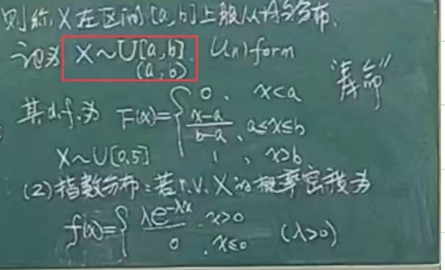 则称X在区间[a,b]上服从均匀分布,
记为 X~U[a,b] Uniform
(a,b)
"寿命"
其d.f.为 F(x)={ 0, x<a
x-a/b-a, a≤x≤b
1, x>b
X~U[0,5]
(2)指数分布:若r.v. X的概率密度为
f(x)={ λe^{-λx}, x>0
0, x≤0 (λ>0)